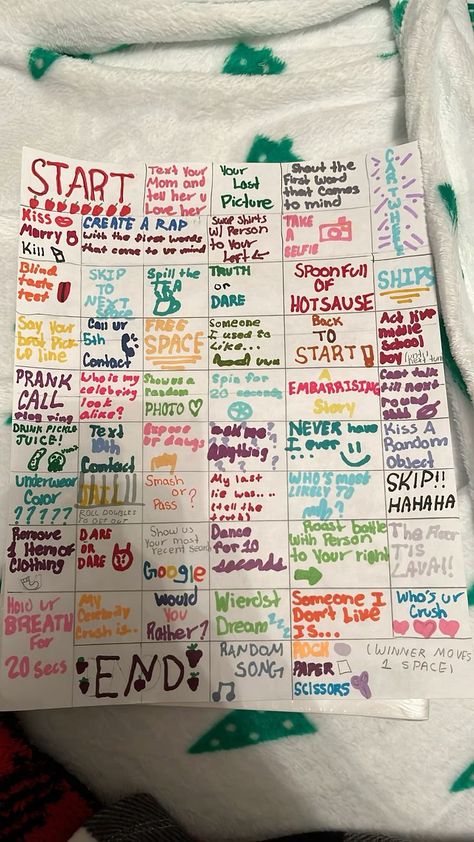 START
Text Your
Mom and
tell her u
Love her
Your
Last
Picture
Shout the
First word
that comes
to mind
CARTWHEEL
Kiss
Marry
Kill
CREATE A RAP
with the first words
that come to ur mind
Swap Shirts
w/ Person
to Your
Left
TAKE
A
SELFIE
Blind
taste
test
SKIP
TO
NEXT
SPACE
Spill the
TEA
TRUTH
or
DARE
SPOON FULL
OF
HOTSAUSE
SHIPS
Say Your
best Pick-
UP line
Call ur
5th
Contact
FREE
SPACE
Someone
I used to
like...
BACK
TO
START
Act like
middle
School
boy
PRANK
CALL
ring
Who is my
celebrity
look
alike?
Show us a
random
PHOTO
Spin for
20 seconds
A
EMBARRISING
Story
Cant talk
till next
round
shhh
DRINK PICKLE
JUICE!
Text
10th
Contact
Expose
or dawgs
ask me
Anything
NEVER have
I ever
Kiss A
Random
Object
Underwear
Color
?????
ROLL DOUBLES
TO GET OUT
Smash
or
Pass
?
My last
lie was....
(tell the
truth)
WHO'S MOST
LIKELY TO
?
SKIP!!
HAHAHA
Remove
1 Item of
Clothing
DARE
OR
DARE
Show us
Your most
recent Search
Google
Dance
for 10
seconds
Roast battle
with Person
to Your right
The Floor
IS
LAVA!!
Hold ur
BREATH
For
20 secs
My
Celebrity
Crush is...
Would
You
Rather?
Wierdst
Dream
zzz
Someone I
Don't Like
IS...
Who's ur
Crush
END!
RANDOM
SONG
ROCK
PAPER
SCISSORS
(WINNER MOVES
1 SPACE)